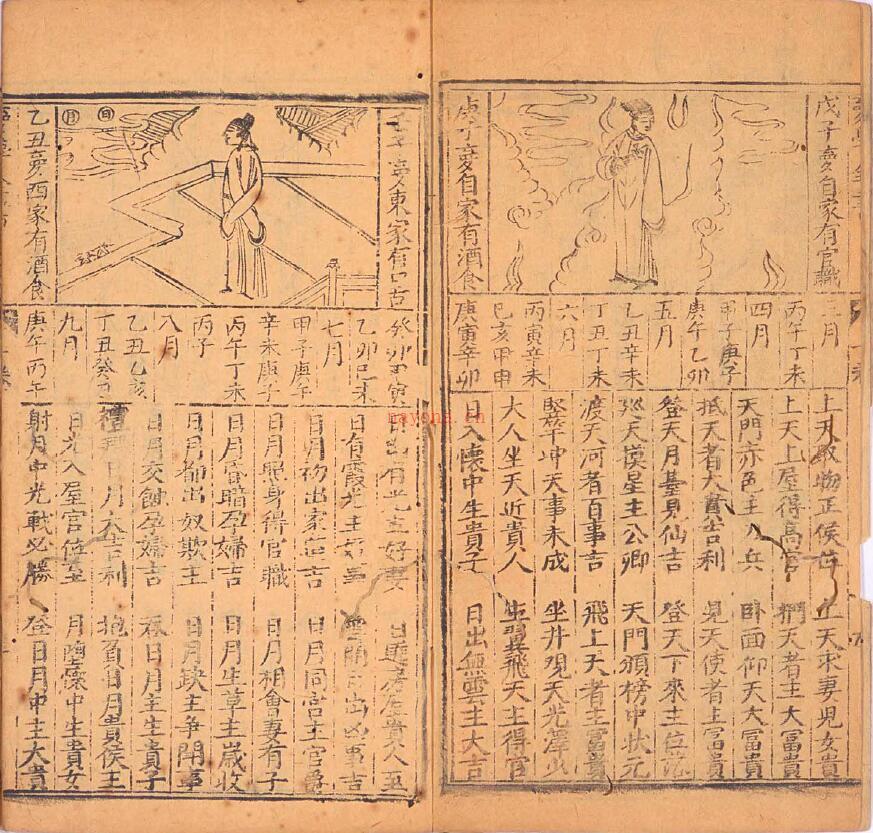 戊子夢自家有官職
庚子夢自家有酒食
三月
丙午丁未
四月
甲子庚子
庚午乙卯
五月
乙丑辛未
丁丑丁未
六月
丙寅辛未
己亥甲申
庚寅辛卯
上天取物正侯位 上天求妻兒女貴
上天上屋得高官 捫天者主大冨貴
天門赤色主 兵 卧面仰天大冨貴
抵天者大 吉利 見天使者主冨貴
登天月臺見仙吉 登天下來主位
廵天漠星主公卿 天門頒榜中狀元
渡天河者百事吉 飛上天者主冨貴
坤天事未成 坐井观天光
大人坐天近貴人 生翼飛天主得官
日入懷中生貴子 日出無雲主大吉
夢東家有口舌
乙丑夢西家有酒食
日
月
癸卯甲寅
乙卯己未
七月
甲子庚午
辛未庚子
丙午丁未
丙子
八月
乙丑乙亥
丁丑癸
九月
庚午丙午
日出有光主好妻 日進房 貴人至
日有霞光主好事 雲開日出凶事吉
日月初出家 吉 日月同宫主官爵
日月照身得官職 日月相會妻有子
日月昏暗孕婦吉 日月生草主歲收
日月都出奴欺主 日月缺主爭鬧事
日月交蝕孕婦吉 吞日月主生貴子
禮拜日月大吉利 抱負日月貴侯王
日光入屋官位至 月墮懷中生貴女
射月中光戰必勝 登日月中主大貴
nayona.cn